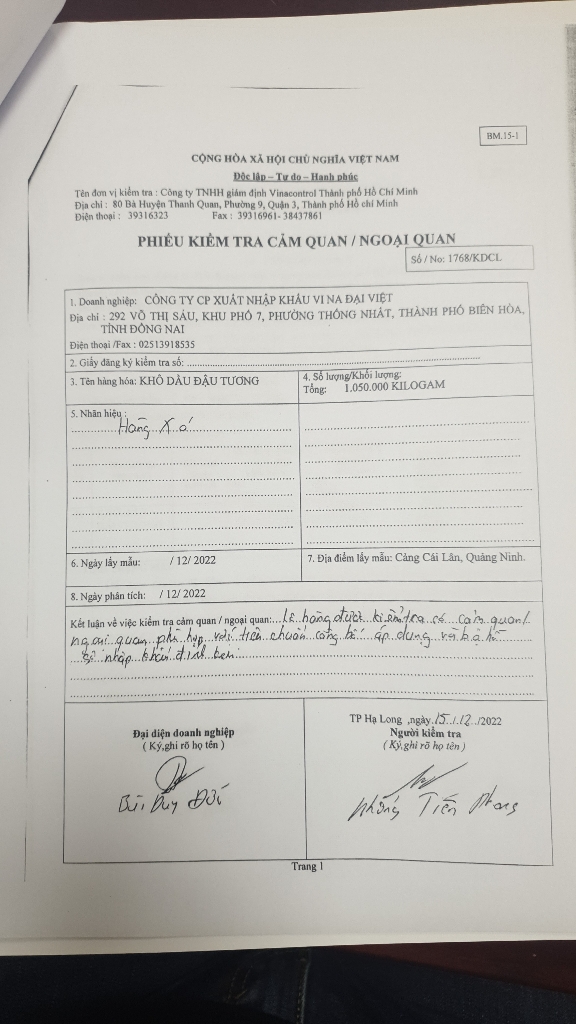 BM.15-1
CỘNG HÒA XÃ HỘI CHỦ NGHĨA VIỆT NAM
Độc lập – Tự do – Hạnh phúc
Tên đơn vị kiểm tra : Công ty TNHH giám định Vinacontrol Thành phố Hồ Chí Minh
Địa chỉ : 80 Bà Huyện Thanh Quan, Phường 9, Quận 3, Thành phố Hồ chí Minh
Điện thoại : 39316323 Fax : 39316961- 38437861
PHIẾU KIỂM TRA CẢM QUAN / NGOẠI QUAN
Số / No: 1768/KDCL
1. Doanh nghiệp: CÔNG TY CP XUẤT NHẬP KHẨU VI NA ĐẠI VIỆT
Địa chỉ : 292 VÕ THỊ SÁU, KHU PHỐ 7, PHƯỜNG THỐNG NHẤT, THÀNH PHỐ BIÊN HÒA,
TỈNH ĐỒNG NAI
Điện thoại /Fax : 02513918535
2. Giấy đăng ký kiểm tra số:
3. Tên hàng hóa: KHÔ DẦU ĐẬU TƯƠNG
4. Số lượng/Khối lượng:
Tổng: 1.050.000 KILOGAM
5. Nhãn hiệu :
Hàng Xá
6. Ngày lấy mẫu: / 12/ 2022
7. Địa điểm lấy mẫu: Cảng Cái Lân, Quảng Ninh.
8. Ngày phân tích: / 12/ 2022
Kết luận về việc kiểm tra cảm quan / ngoại quan: Lô hàng được kiểm tra có cảm quan/
ngoại quan phù hợp với tiêu chuẩn công bố áp dụng và hồ
sơ nhập khẩu đính kèm
TP Hạ Long ,ngày 15/12/2022
Đại diện doanh nghiệp
( Ký,ghi rõ họ tên )
Người kiểm tra
( Ký,ghi rõ họ tên )
Bùi Duy Đức
Phùng Tiến Phong
Trang 1